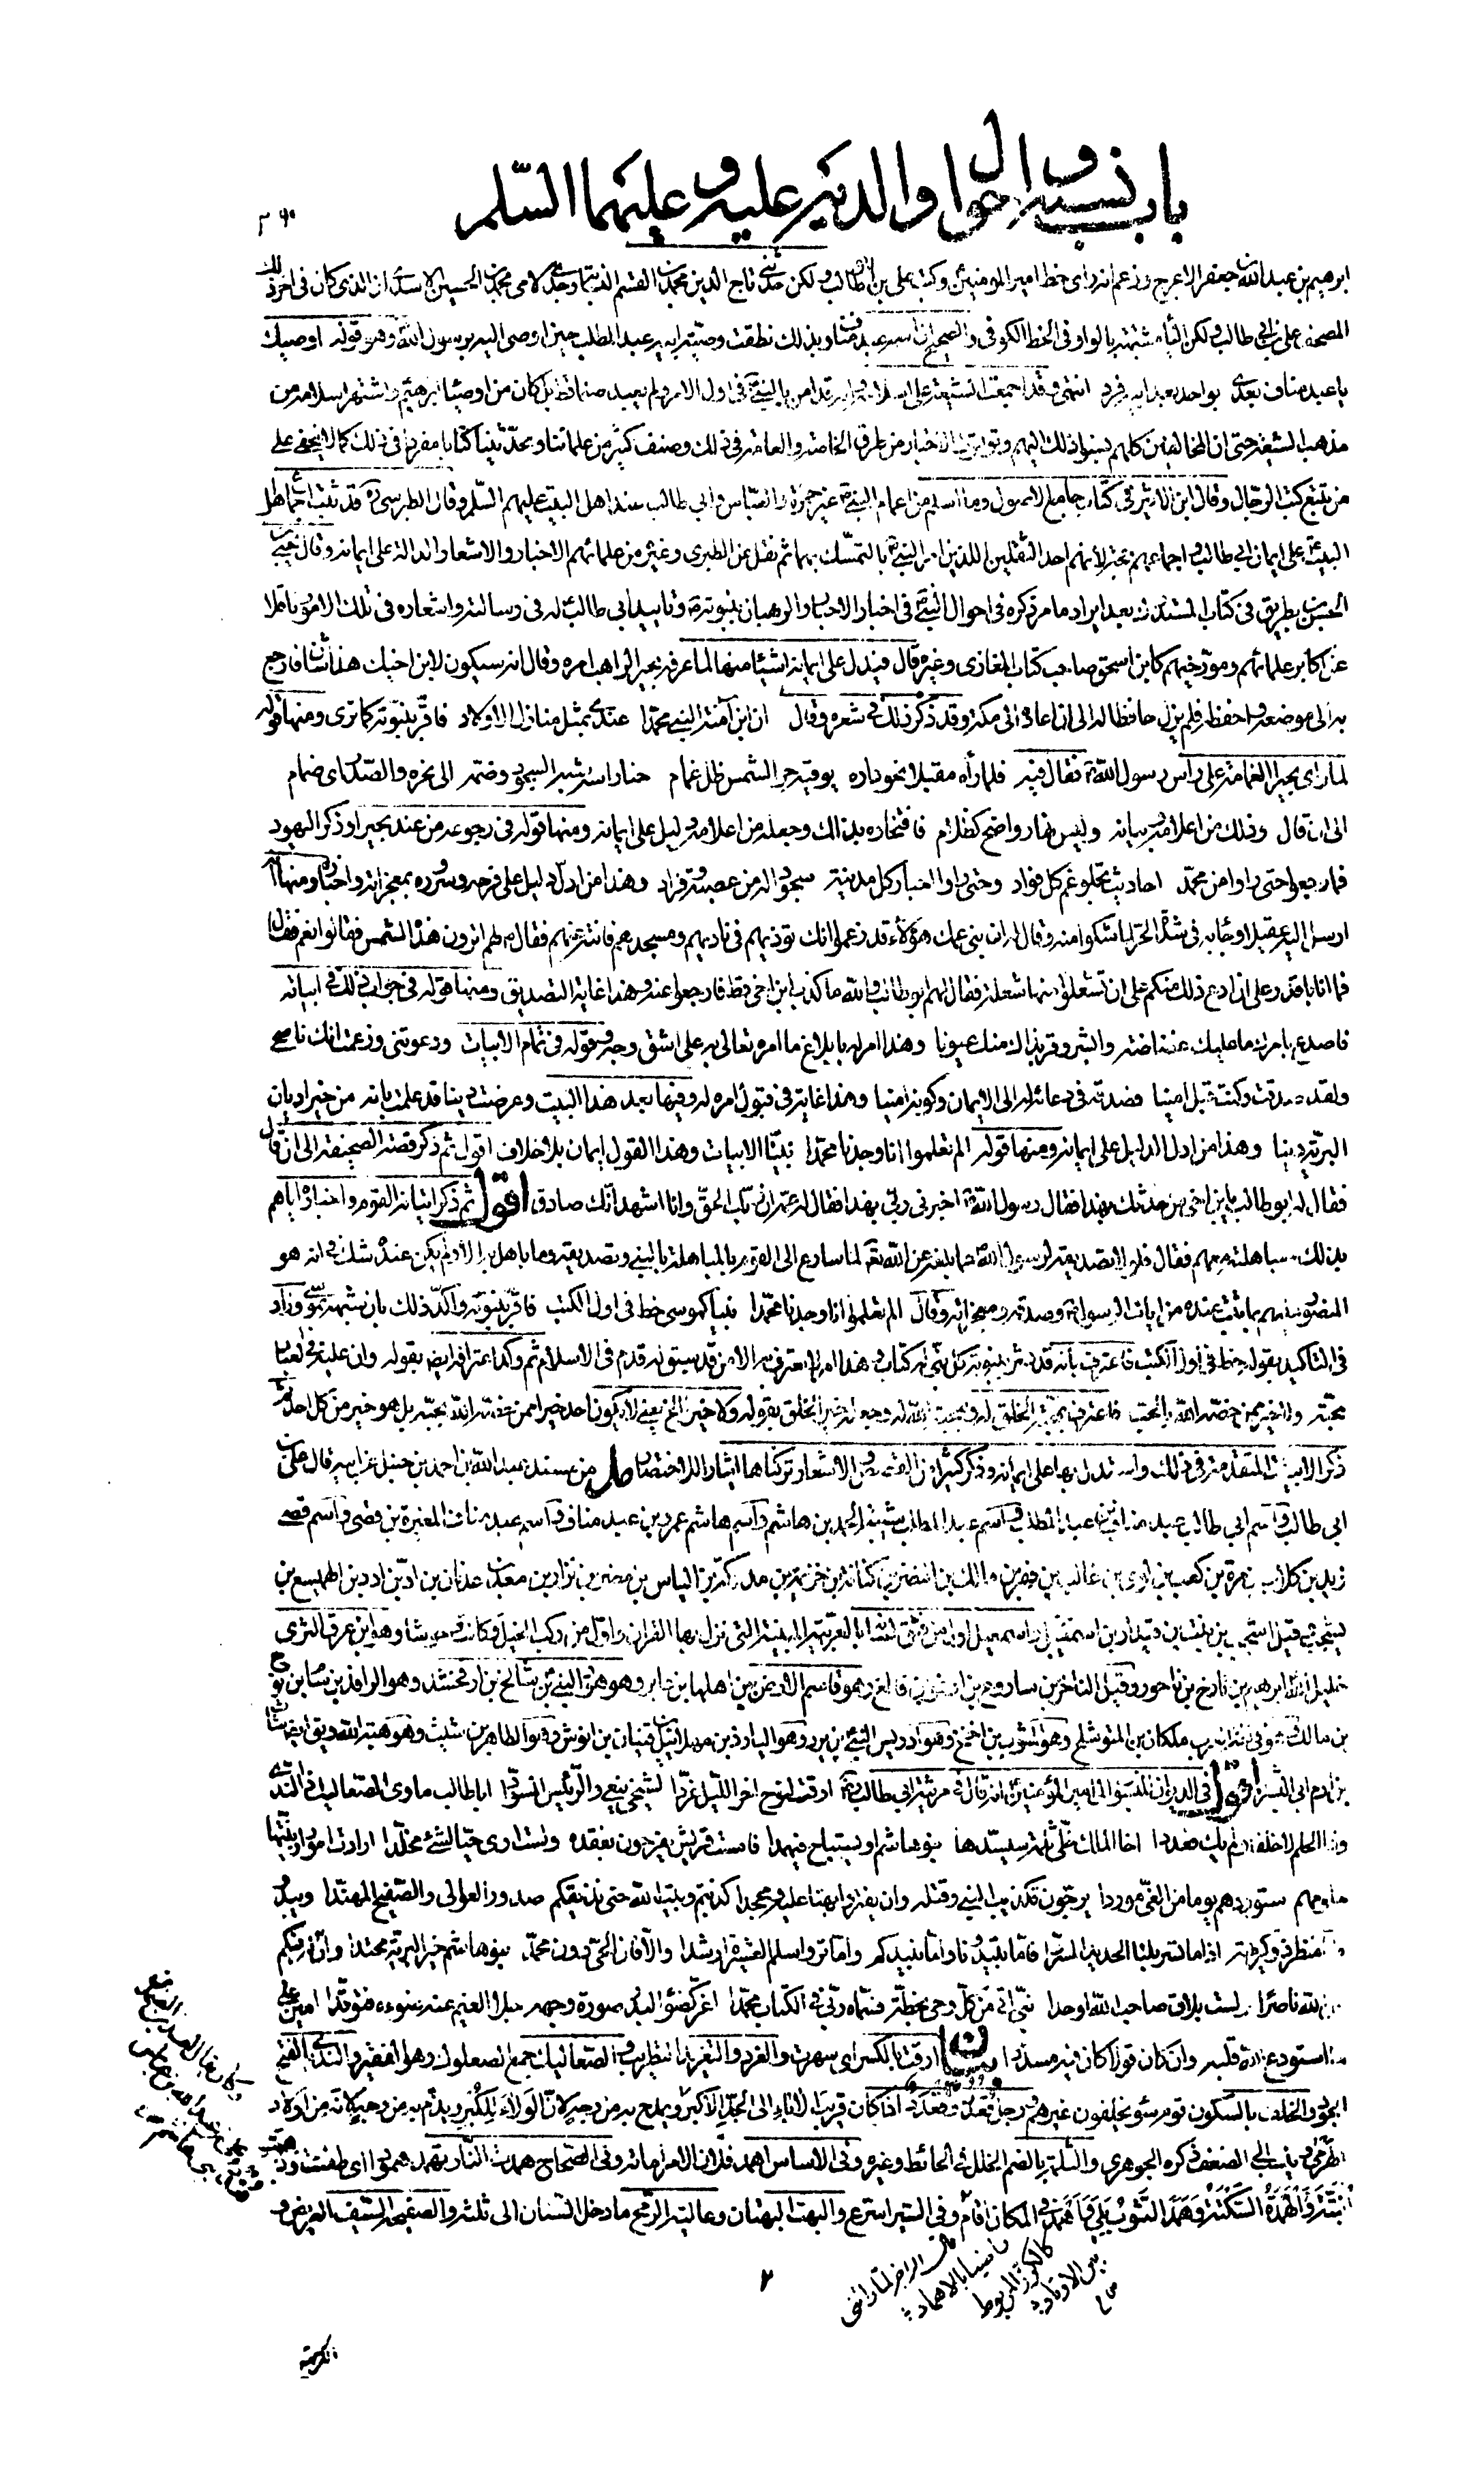 باب نسبه واحوال والديه عليه وعليهما السلم
ابرهيم بن عبد الله بن جعفر الاعرج وزعم انه راى خط امير المومنين وكتب على بن ابو طالب ولكن حدثنى تاج الدين محمد بن القسم النسابة وجدى لامى محمد بن الحسين الاسدى ان الذى كان فى اخر ذلك
المصحف على بن ابى طالب ولكن الياء مشبهة بالواو فى الخط الكوفى والصحيح ان اسمه عبد مناف وبذلك نطقت وصية ابيه عبد المطلب حين اوصى اليه برسول الله وهو قوله اوصيك
يا عبد مناف بعدى بواحد بعد ابيه فرد انتهى وقد اجمعت الشيعة على اسلامه وانه قد امن بالنبى فى اول الامر ولم يعبد صنما قط بل كان من اوصياء ابرهيم واشتهر اسلامه من
مذهب الشيعة حتى ان المخالفين كلهم نسبوا ذلك اليهم وتواترت الاخبار من طرق الخاصة والعامة فى ذلك وصنف كثير من علمائنا ومحدثينا كتابا مفردا فى ذلك كما لا يخفى على
من تتبع كتب الرجال وقال ابن الاثير فى كتاب جامع الاصول وما اسلم من اعمام النبى غير حمزة والعباس وابى طالب عند اهل البيت عليهم السلم وقال الطبرسى قد ثبت اجماع اهل
البيت على ايمان ابى طالب واجماعهم حجة لانهم احد الثقلين اللذين امر النبى بالتمسك بهما ثم نقل عن الطبرى وغيره من علمائهم الاخبار والاشعار الدالة على ايمانه وقال يحيى بن
الحسن بن بطريق فى كتاب المستدرك بعد ايراد ما مر ذكره فى احوال النبى فى اخبار الاحبار والرهبان بنبوته وتاييد ابى طالب له فى رسالته واشعاره فى تلك الامور ناقلا
عن اكابر علمائهم ومورخيهم كابن اسحق صاحب كتاب المغازى وغيره قال فيدل على ايمانه اشياء منها لما عرفه بحيرا الراهب امره وقال انه سيكون لابن اخيك هذا شان فارجع
به الى موضعه واحفظه فلم يزل حافظا له الى ان اعاده الى مكة وقد ذكر ذلك فى شعره وقال ان ابن آمنة النبى محمدا عندى بمثل منازل الاولاد فاقر بنبوته كما ترى ومنها قوله
لما راى بحيرا الغمامة على راس رسول الله فقال فيه فلما رآه مقبلا نحو داره يوقيه حر الشمس ظل غمام حنا راسه شبه السجود وضمه الى نحره والصدر اى ضمام
الى ان قال وذلك من اعلامه وبيانه وليس نهار واضح كظلام فافتخاره بذلك وجعله من اعلامه دليل على ايمانه ومنها قوله فى رجوعه من عند بحيرا وذكر اليهود
فما رجعوا حتى راوا من محمد احاديث تجلو غم كل فواد وحتى راوا احبار كل مدينة سجودا له من عصبة وفراد وهذا من ادل دليل على فرحه وسروره بمعجزاته واخباره ومنها انه
ارسل اليه عقيلا وجاء به فى شدة الحر لما شكوا منه وقال له ان بنى عمك هؤلاء قد زعموا انك توذيهم فى ناديهم ومسجدهم فانته عنهم فقال لهم اترون هذه الشمس فقالوا نعم فقال
فما انا باقدر على ان ادع ذلك منكم على ان تشعلوا منها شعلة فقال لهم ابو طالب والله ما كذب ابن اخى قط فارجعوا عنه وهذا غاية التصديق ومنها قوله فى جواب ذلك ابياته
فاصدع بامرك ما عليك غضاضة وابشر وقر بذاك منك عيونا وهذا امر له بابلاغ ما امره تعالى به على اشق وجه وقوله فى تمام الابيات ودعوتنى وزعمت انك ناصحى
ولقد صدقت وكنت قبل امينا فصدقه فى دعائه له الى الايمان وكونه امينا وهذا غاية فى قبول امره له وفيها بعد هذا البيت وعرضت دينا قد علمت بانه من خير اديان
البرية دينا وهذا من ادل الدليل على ايمانه ومنها قوله الم تعلموا انا وجدنا محمدا نبيا الابيات وهذا القول ايمان بلا خلاف اقول ثم ذكر قصة الصحيفة الى ان قال
فقال له ابو طالب يا ابن اخى من حدثك بهذا فقال رسول الله اخبرنى ربى بهذا فقال له عمه ان ربك الحق وانا اشهد انك صادق اقول ثم ذكر اتيانه القوم واخباره اياهم
بذلك ومباهلته معهم فقال فلولا تصديقه لرسول الله بما بلغه عن الله تعالى لما سارع الى القوم بالمباهلة بالنبى وتصديقه وما باهل به الا ولم يكن عنده شك فى انه هو
المنصور عليهم بما ثبت عنده من ايات الرسول وصدقه ومعجزاته وقال الم تعلموا انا وجدنا محمدا نبيا كموسى خط فى اول الكتب فاقر بنبوته واكد ذلك بان شبهه بموسى وزاد
فى التاكيد بقوله خط فى اول الكتب فاعترف بانه قد بشر بنبوته كل نبى له كتاب وهذا امر لا يعترف به الا من قد سبق له قدم فى الاسلام ثم وكد اعترافه ايضا بقوله وان عليه فى العباد
محبة ولا خير ممن خصه الله بالحب فاعترف بمحبة الخلق له ومحبة الله له وجعله خير الخلق بقوله ولا خير الخ يعنى لا يكون احد خيرا ممن خصه الله بحبه بل هو خير من كل احد ثم
ذكر الابيات المتقدمة فى ذلك واستدل بها على ايمانه وذكر كثيرا من القصص والاشعار تركناها ايثارا للاختصار من مسند عبد الله بن احمد بن حنبل عن ابيه قال على بن
ابى طالب واسم ابى طالب عبد مناف بن عبد المطلب واسم عبد المطلب شيبة الحمد بن هاشم واسم هاشم عمرو بن عبد مناف واسم عبد مناف المغيرة بن قصى واسم قصى
زيد بن كلاب بن مرة بن كعب بن لوى بن غالب بن فهر بن مالك بن النضر بن كنانة بن خزيمة بن مدركة بن الياس بن مضر بن نزار بن معد بن عدنان بن اد بن ادد بن الهميسع بن
يشجب وقيل اشجب بن نبت بن قيدار بن اسمعيل واسمعيل اول من فتق لسانه بالعربية المبينة التى نزل بها القران واول من ركب الخيل وكانت وحوشا وهو ابن عرق الثرى
خليل الله ابرهيم بن تارخ بن ناحور وقيل الناخر بن ساروغ بن ارغو بن فالغ وهو قاسم الارض بين اهلها بن عابر وهو هود النبى بن شالخ بن ارفخشد وهو الرافد بن سام بن نوح
بن مالك وهو فى لغة العرب ملكان بن المتوشلخ وهو اشوب بن اخنخ وهو ادريس النبى بن يرد وهو اليارد بن مهلائيل بن قينان بن انوش وهو الطاهر بن شيث وهو هبة الله ويق ايضا شاث
بن ادم ابى البشر اقول فى الديوان المنسوب الى امير المؤمنين انه قال فى مرثية ابى طالب ارقت لنوح اخر الليل غردا لشيخى ينعى والرئيس المسودا ابا طالب ماوى الصعاليك ذا الندى
وذا الحلم لا خلفا ولم يك قعددا اخا الملك خلى ثلمة سيسدها بنو هاشم او يستباح فيهمدا فامست قريش يفرحون بفقده ولست ارى حيا لشئ مخلدا ارادت امورا زينتها
حلومهم ستوردهم يوما من الغى موردا يرجون تكذيب النبى وقتله وان يفتروا بهتا عليه ومجحدا كذبتم وبيت الله حتى نذيقكم صدور العوالى والصفيح المهندا ويبدو
منا منظر ذو كريهة اذا ما تسربلنا الحديد المسردا فاما تبيدونا واما نبيدكم واما تروا سلم العشيرة ارشدا والا فان الحى دون محمد بنو هاشم خير البرية محتدا وان له فيكم
من الله ناصرا ولست بلاق صاحب الله اوحدا نبى اتى من كل وحى بخطة فسماه ربى فى الكتاب محمدا اغر كضوء البدر صورة وجهه جلا الغيم عنه ضوءه فتوقدا امين على
ما استودع الله قلبه وان كان قولا كان فيه مسددا بيان ارقت بالكسر اى سهرت والغرد والتغريد التطريب والصعاليك جمع الصعلوك وهو الفقير والندى بالفتح
الجود والخلف بالسكون قوم سوء يخلفون غيرهم ورجل قعدد وقعدد اذا كان قريب الاباء الى الجد الاكبر ويمدح به من وجه لان الولاء للكبر ويذم به من وجه لانه من اولاد
الهرمى وينسب الى الضعف ذكره الجوهرى والثلمة بالضم الخلل فى الحائط وغيره وفى الاساس اهمد فلان الامر اماته وفى الصحاح همدت النار تهمد همودا اى طفئت وذهبت
البتة والهمدة السكتة وهمد الثوب بلى واهمد فى المكان اقام وفى السير اسرع والبهت البهتان وعالية الرمح ما دخل السنان الى ثلثه والصفيحة السيف العريض و
الكريهة